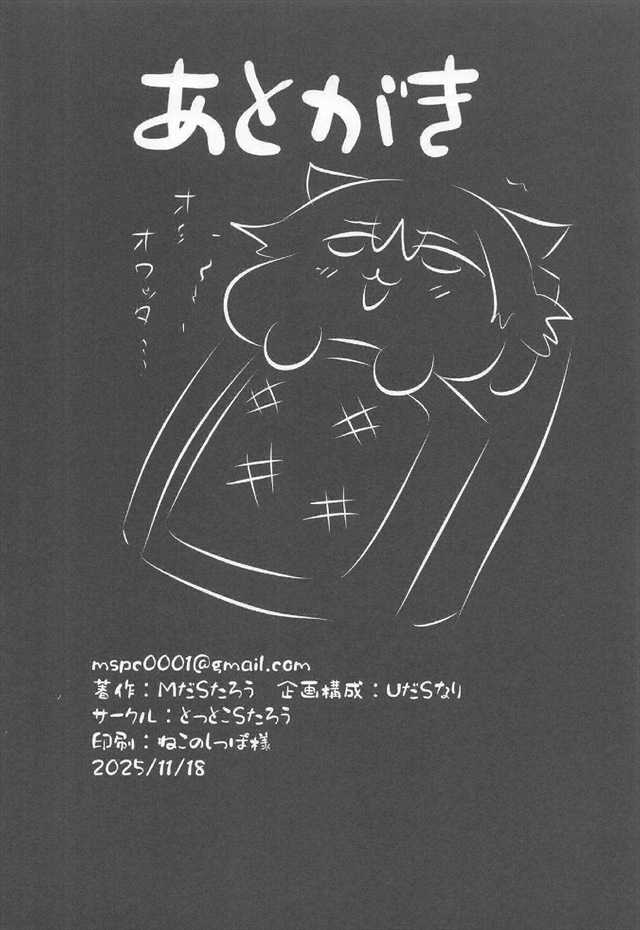 あとがき
オシ〜〜
オワッタ…
mspc0001@gmail.com
著作：MだSたろう　企画構成：UだSなり
サークル：とっとこSたろう
印刷：ねこのしっぽ様
2025/11/18